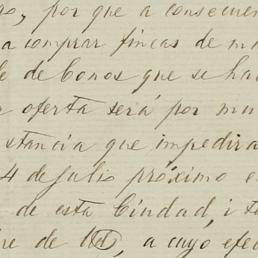 , por que a consecuen
a comprar fincas de m
de bonos que se ha
oferta será por mu
stancia que impedira
4 de julio próximo e
de esta Ciudad, i t
re de Ud, a cuyo efec